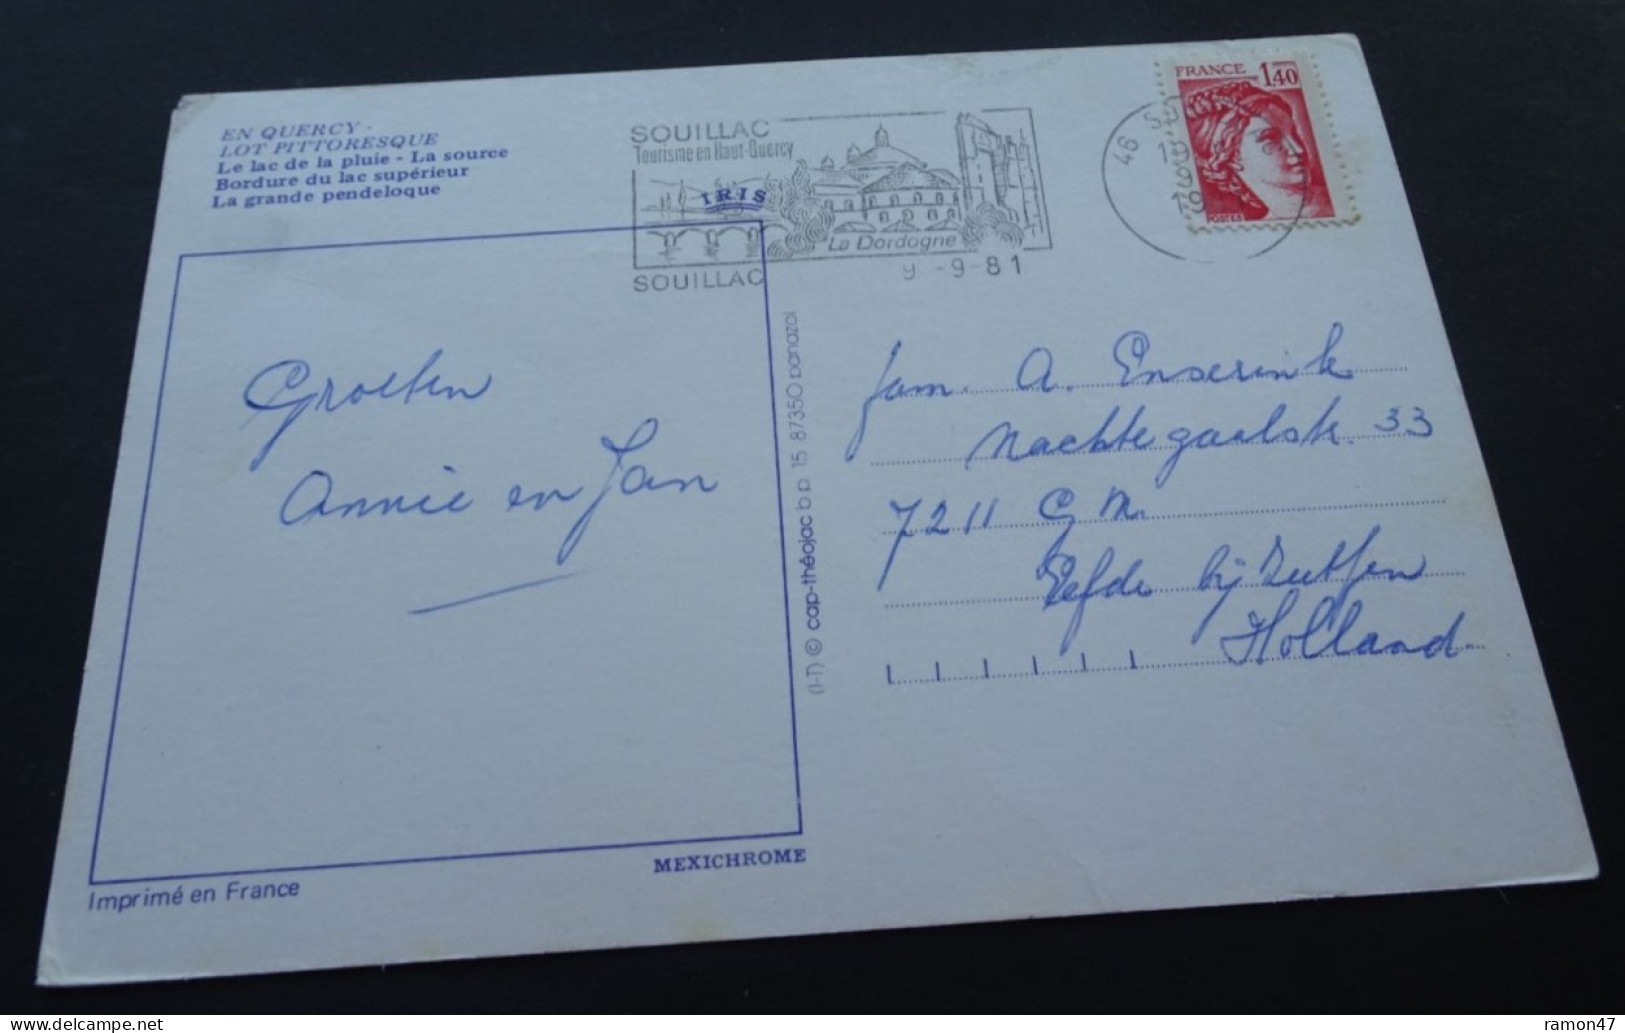 EN QUERCY -
LOT PITTORESQUE
Le lac de la pluie - La source
Bordure du lac supérieur
La grande pendeloque
IRIS
SOUILLAC
Tourisme en Haut-Quercy
La Dordogne
SOUILLAC
9-9-81
46 S
FRANCE 1,40
POSTES
Groeten
Annie en Jan
(I-T) © cap-théojac b p. 15 87350 panazol
fam. A. Enserink
Nachtegaalstr. 33
7211 G M.
Eefde bij Zutfen
Holland
MEXICHROME
Imprimé en France
ramon47